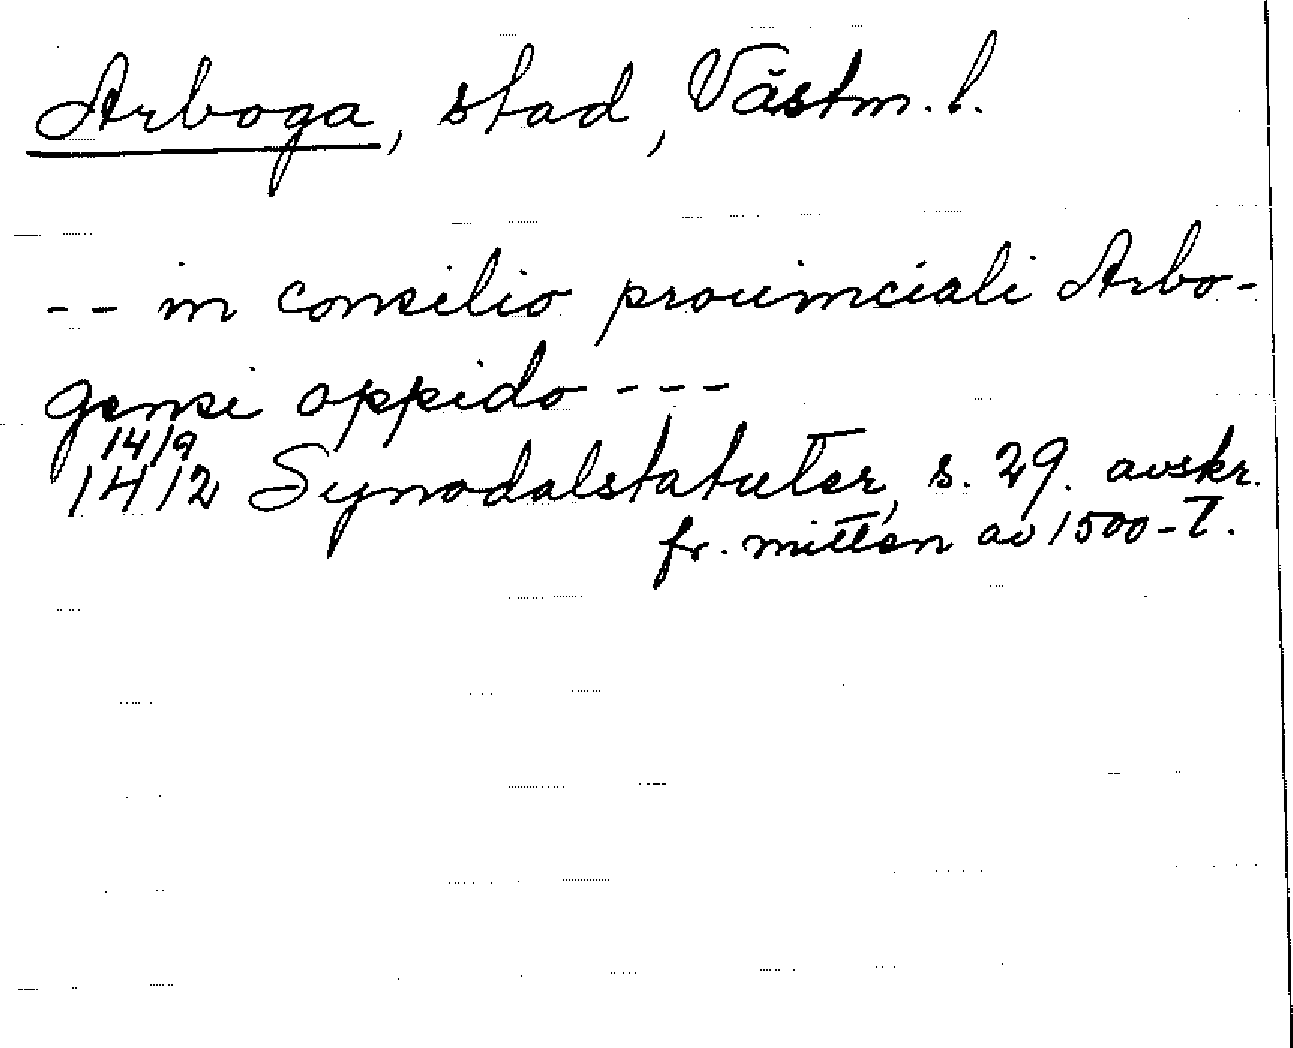 Arboga, stad, Västm. l.
-- in consilio prouinciali Arbo-
gensi oppido ---
14/9
1412 Synodalstatuter, s. 29. avskr.
fr. mitten av 1500-T.